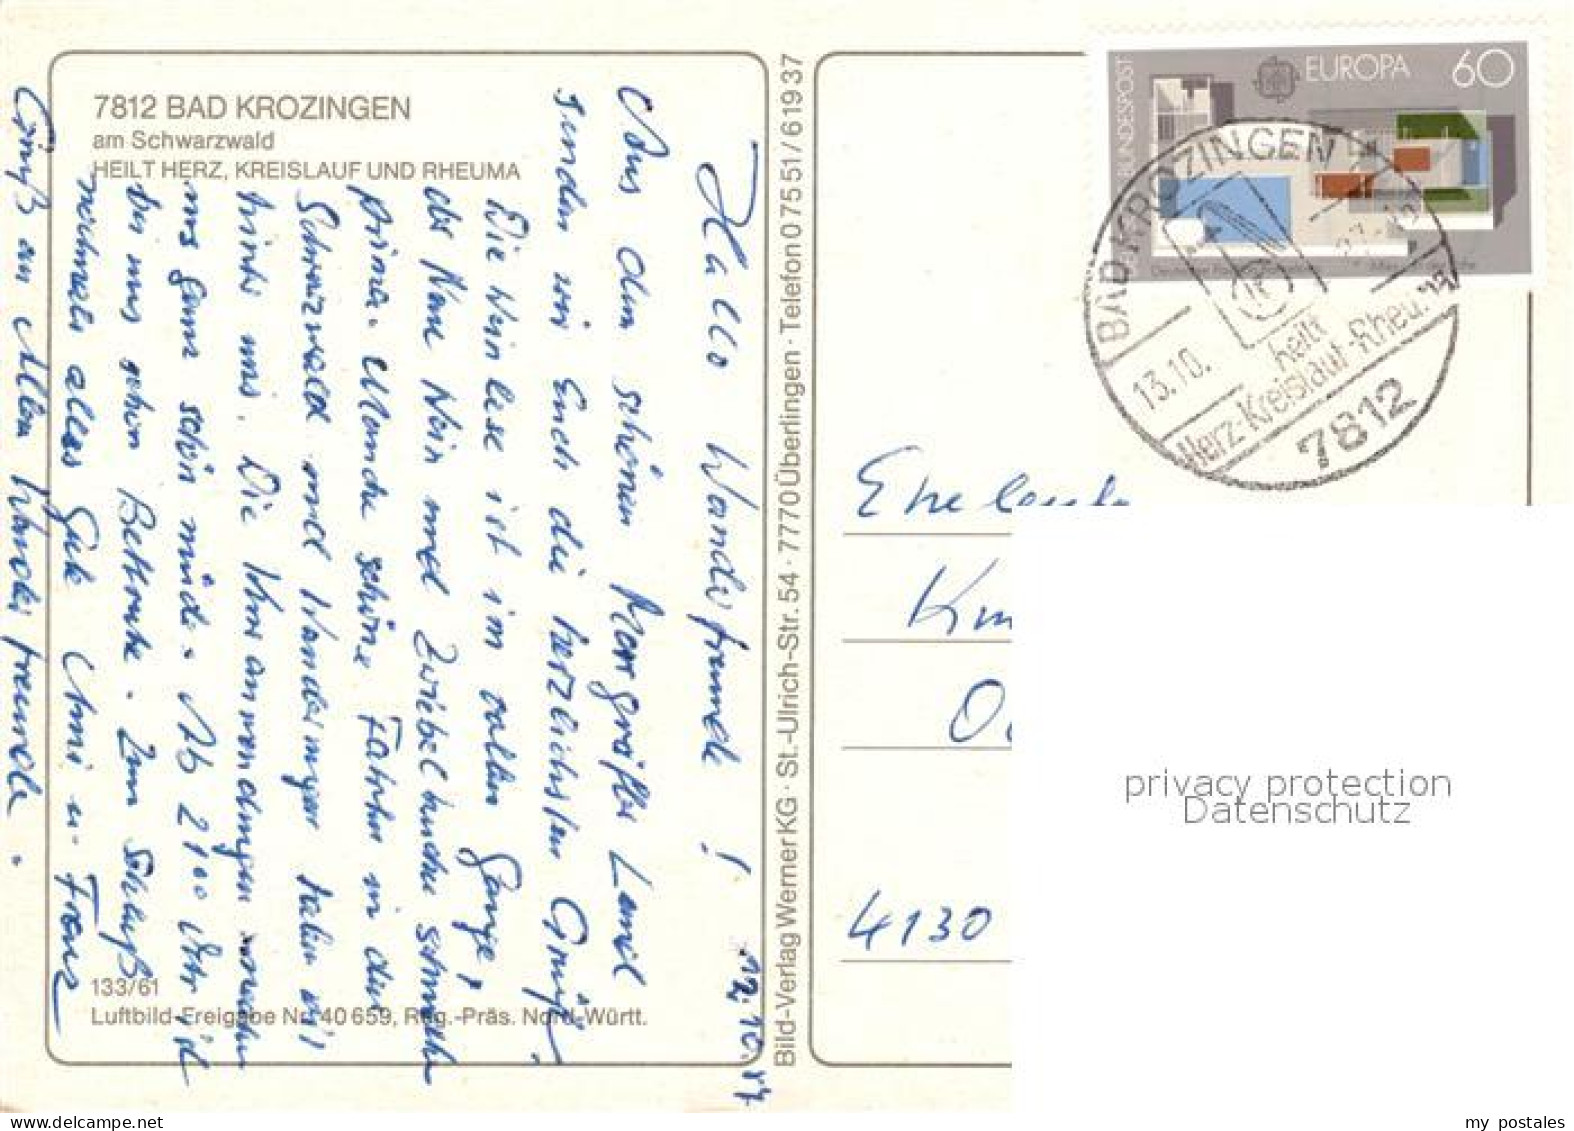 7812 BAD KROZINGEN
am Schwarzwald
HEILT HERZ, KREISLAUF UND RHEUMA
12.10.87
Hallo Wanderfreunde !
Aus dem schönen Markgräfler Land
senden wir Euch die herzlichsten Grüße.
Die Weinlese ist im vollen Gange,
der Neue Wein und Zwiebelkuchen schmeckt
prima. Manche schöne Fahrten in den
Schwarzwald und Wanderungen haben wir
hinter uns. Die Kuranwendungen machen
uns ganz schön müde. Ab 21 00 Uhr ist
bei uns schon Bettruhe. Zum Schluß
nochmals alles Gute Anni u. Franz
Gruß an Allen Wanderfreunde.
133/61
Luftbild-Freigabe Nr. 40 659, Reg.-Präs. Nord-Württ.
Bild-Verlag Werner KG · St.-Ulrich-Str. 54 · 7770 Überlingen · Telefon 0 75 51 / 6 19 37
DEUTSCHE BUNDESPOST
EUROPA
60
BAD KROZINGEN
13.10.
heilt
Herz-Kreislauf-Rheuma
7812
Eheleute
4130
privacy protection
Datenschutz
my postales